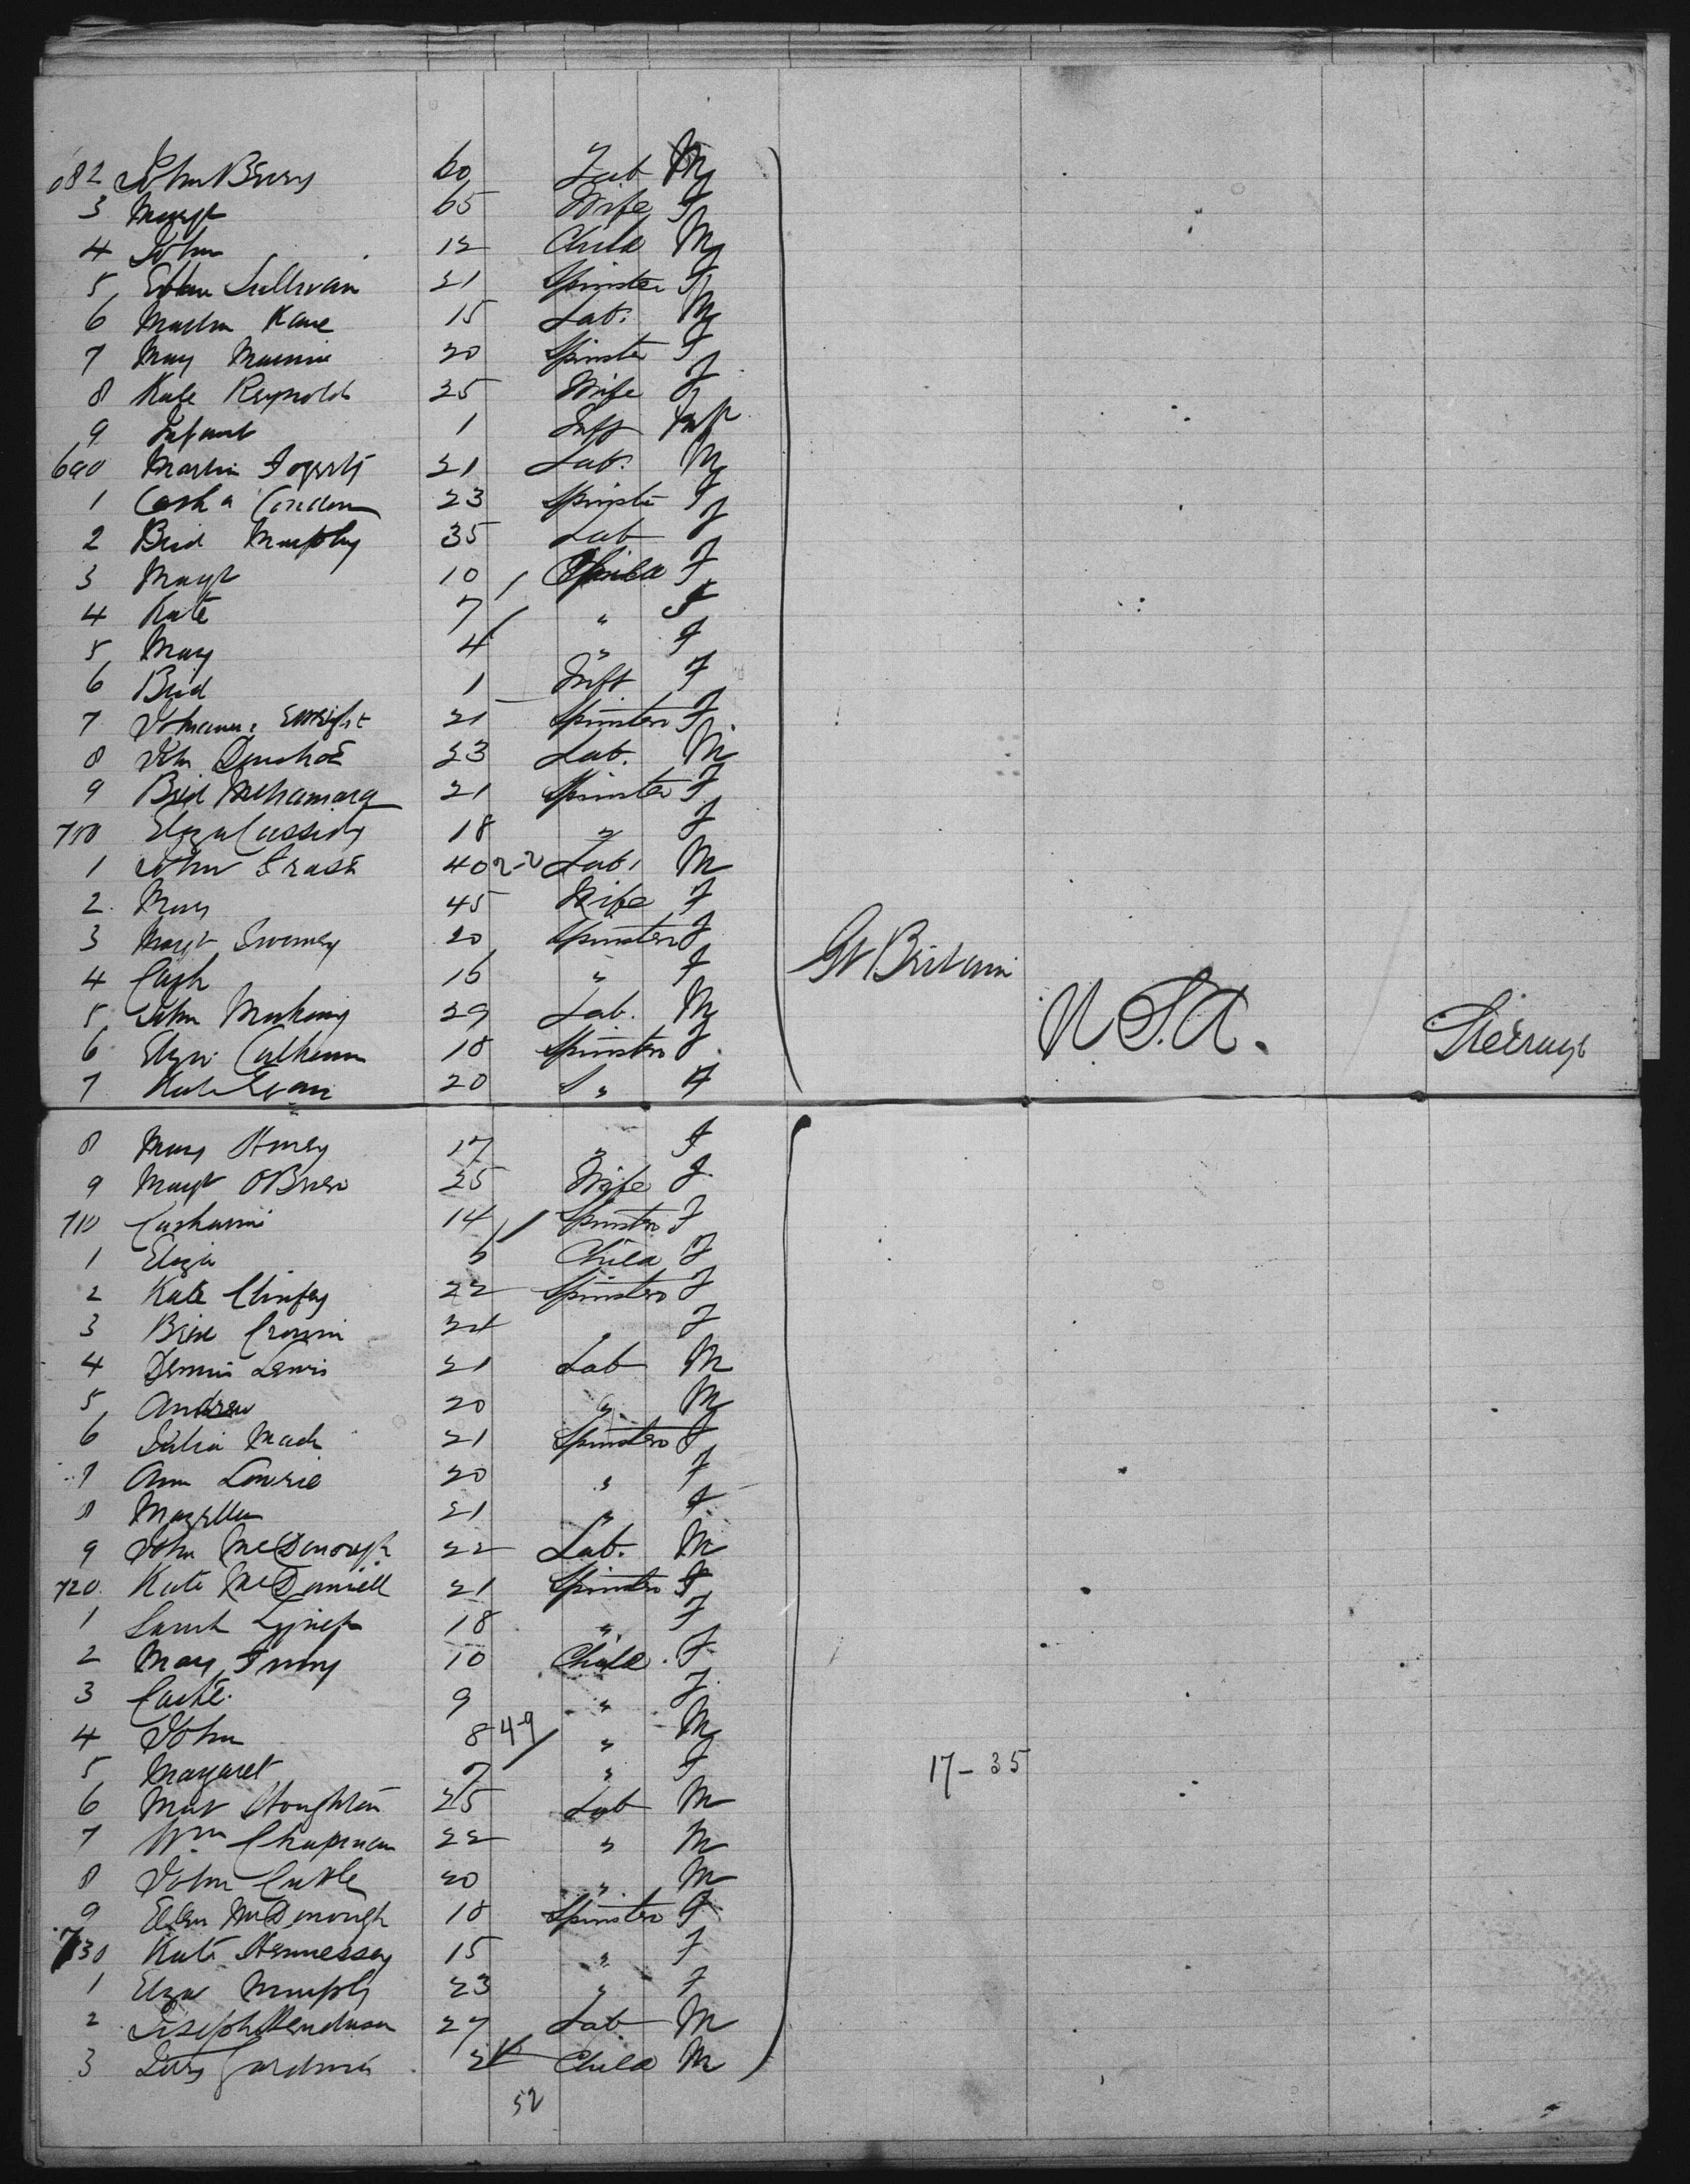 682 John Barry 60 Lab M
3 Margt 65 Wife F
4 John 12 Child M
5 Ellen Sullivan 21 Spinster F
6 Martin Kane 15 Lab. M
7 Mary 20 Spinster F
8 Kate Reynolds 25 Wife F
9 Infant 1 Inft Inft
690 Martin Fogerty 21 Lab. M
1 Cath Condon 23 Spinster F
2 Brid Murphy 35 Lab F
3 Margt 10 Child F
4 Kate 7 " F
5 Mary 4 " F
6 Brid 1 Inft F
7 Johanna Enright 21 Spinster F
8 John Donohoe 23 Lab. M
9 Brid McNamara 21 Spinster F
700 Eliza Cassidy 18 " F
1 John 40 2-2 Lab. M
2 Mary 45 Wife F
3 Margt Sweeney 20 Spinster F
4 Cath 16 " F
Gt Britain
5 John 29 Lab. M
U.S.A. Steerage
6 Eliza Calhoun 18 Spinster F
7 Kate 20 " F
8 Mary 17 " F
9 Margt O'Brien 25 Wife F
710 Catharine 14 Spinster F
1 Eliza Child F
2 Kate 22 Spinster F
3 Brid Cronin 24 " F
4 Dennis Lewis 21 Lab M
5 Andrew 20 " M
6 Julia 21 Spinster F
7 Ann Lowrie 20 " F
8 21 " F
9 John McDonough 22 Lab. M
720 Kate McDonnell 21 Spinster F
1 Sarah Lynch 18 " F
2 Mary 10 Child F
3 9 " F
4 John 8 4-9 " M
5 Margaret 7 " F
17-35
6 Houghton 25 Lab M
7 Wm Chapman 22 " M
8 John 20 " M
9 Ellen McDonough 18 Spinster F
730 Kate Hennessey 15 " F
1 Eliza Murphy 23 " F
2 Joseph Henderson 27 Lab M
3 Child M
52